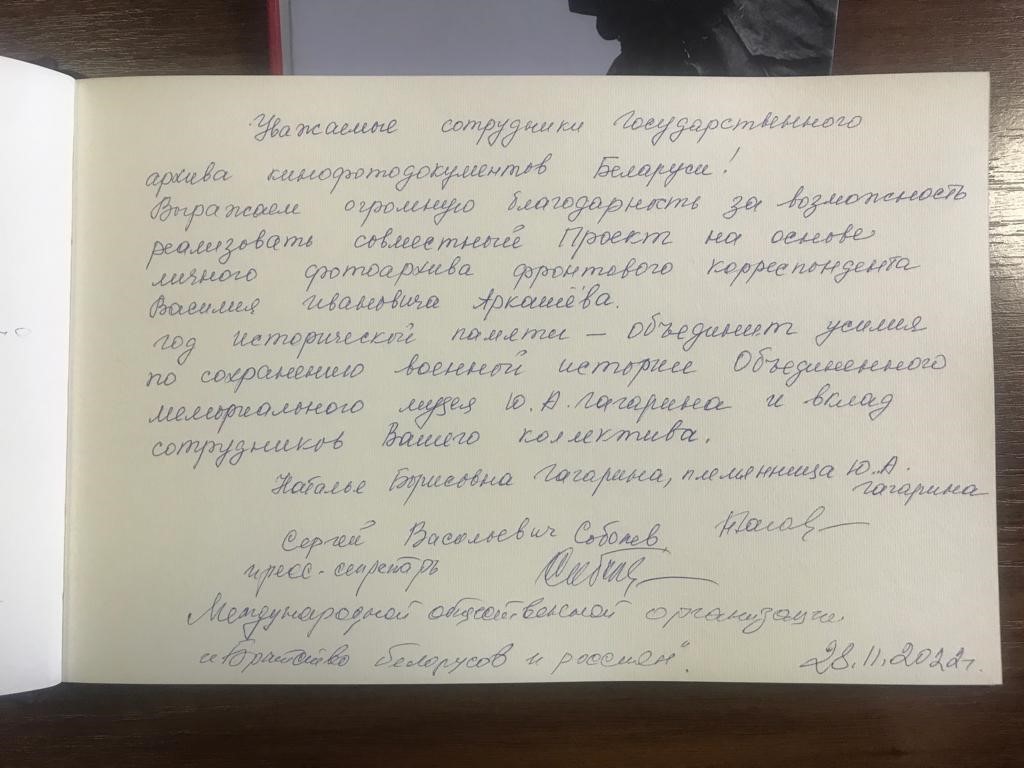 Уважаемые сотрудники Государственного
архива кинофотодокументов Беларуси!
Выражаем огромную благодарность за возможность
реализовать совместный Проект на основе
личного фотоархива фронтового корреспондента
Василия Ивановича Аркашёва.
Год исторической памяти – объединит усилия
по сохранению военной истории Объединенного
мемориального музея Ю.А. Гагарина и вклад
сотрудников Вашего коллектива.
Наталье Борисовна Гагарина, племянница Ю.А.
Гагарина
Сергей Васильевич Соболев
пресс-секретарь
Международной общественной организации
"Братство белорусов и россиян".
28.11.2022г.